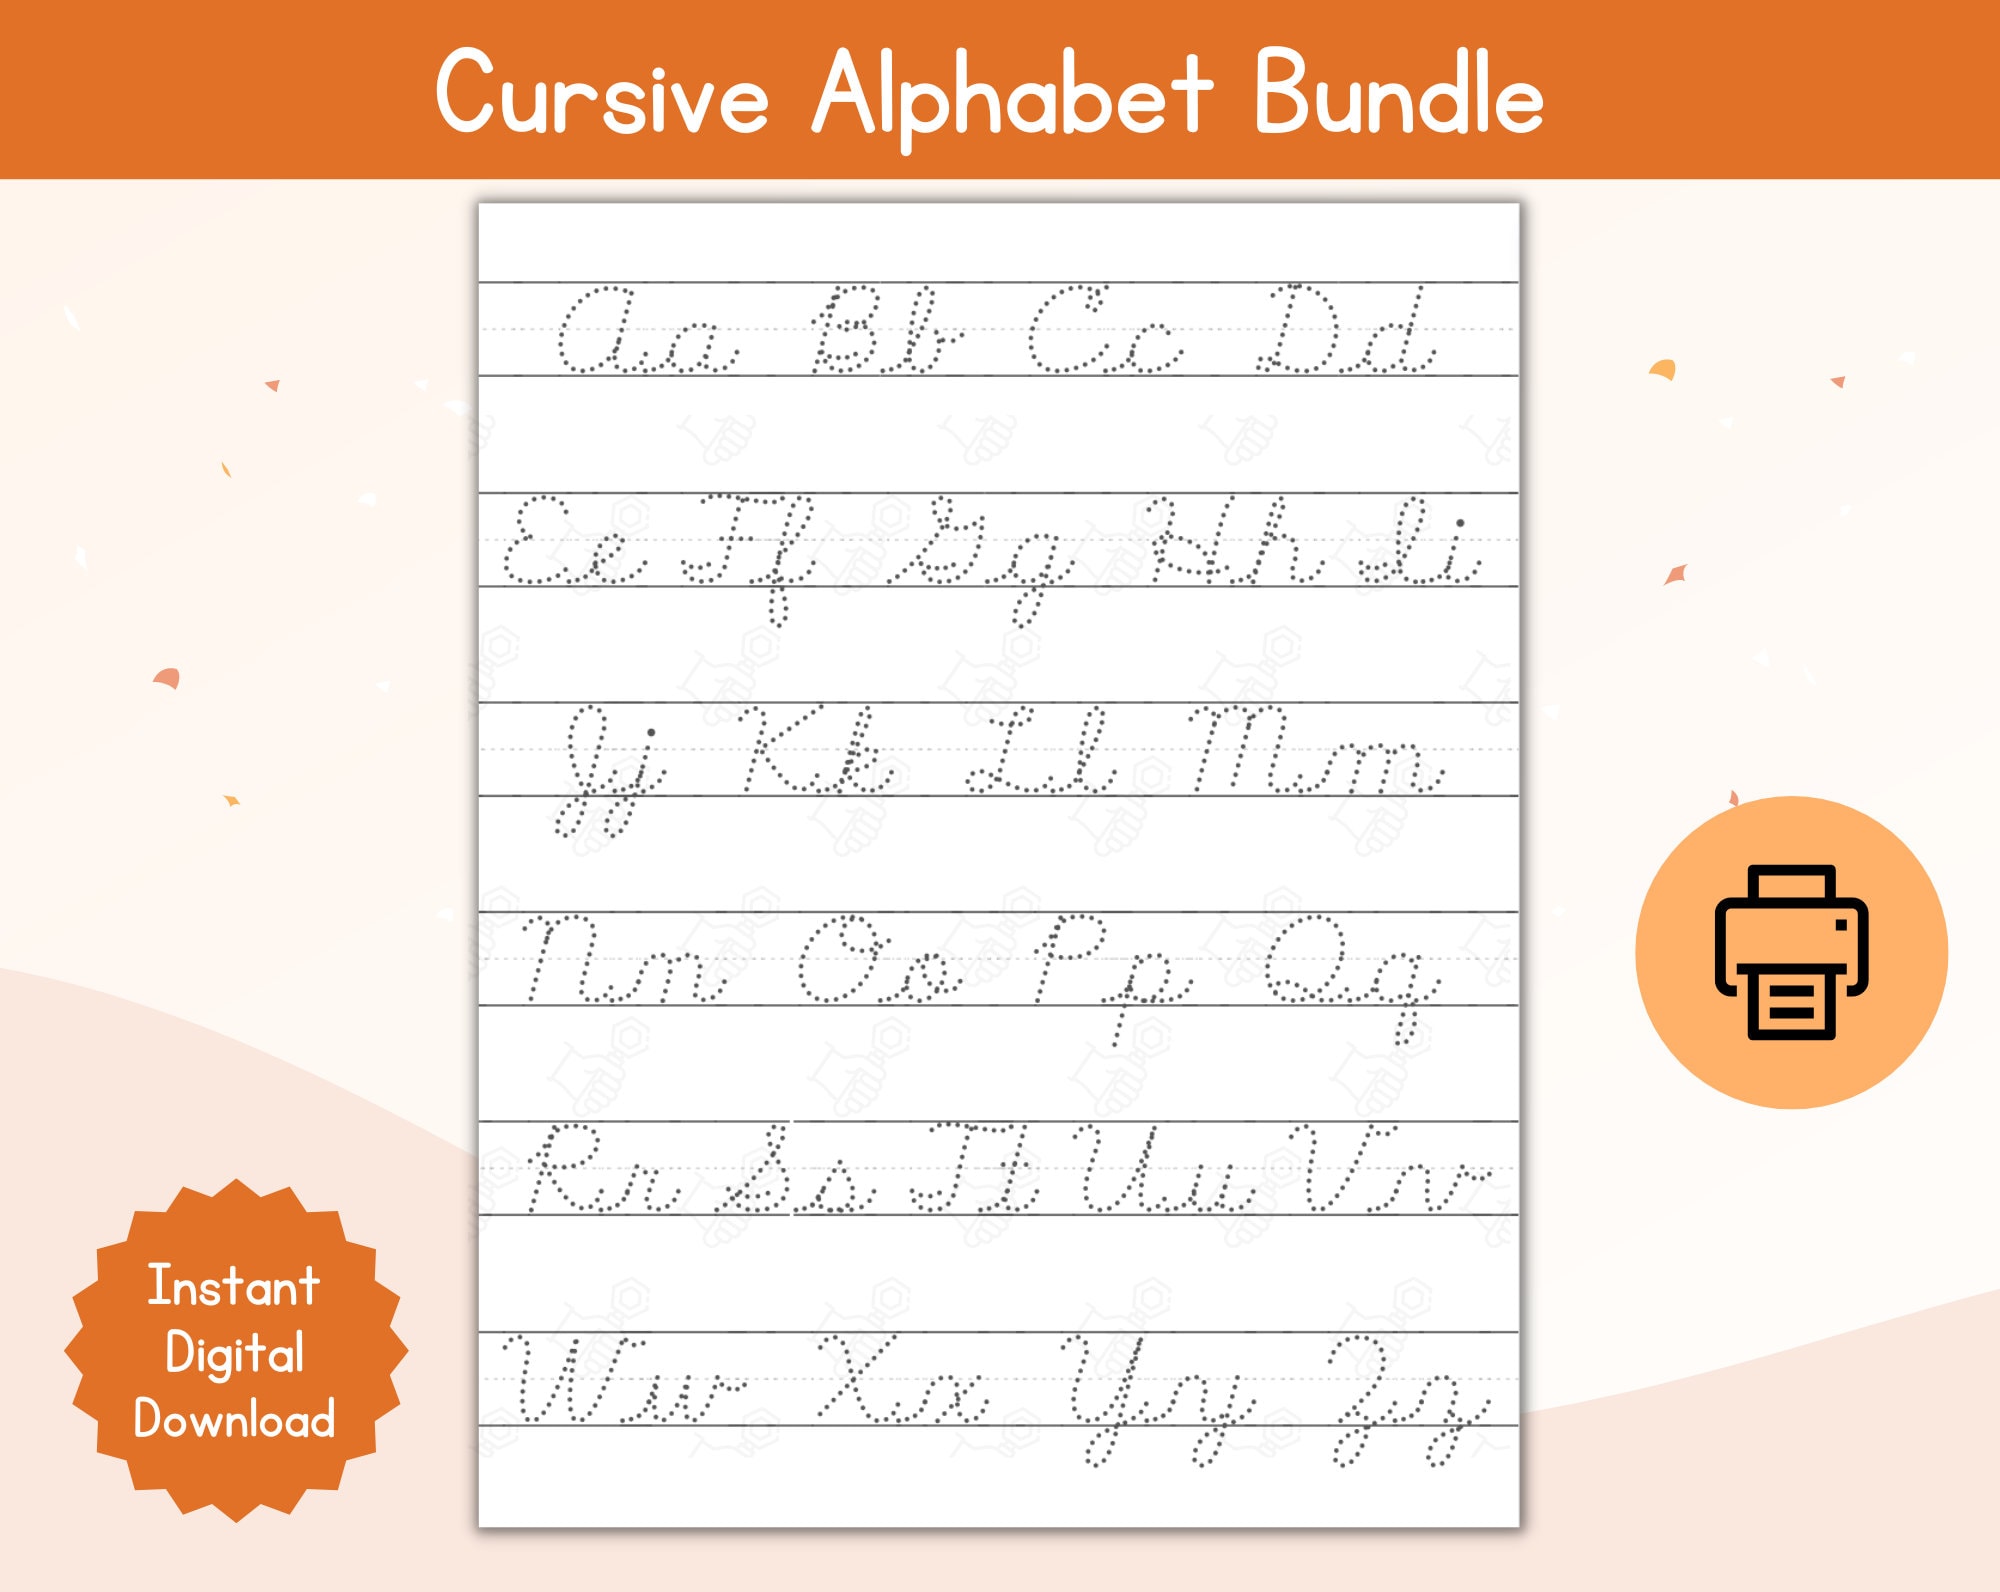 Cursive Alphabet Bundle
Aa Bb Cc Dd
Ee Ff Gg Hh Ii
Jj Kk Ll Mm
Nn Oo Pp Qq
Rr Ss Tt Uu Vv
Ww Xx Yy Zz
Instant
Digital
Download